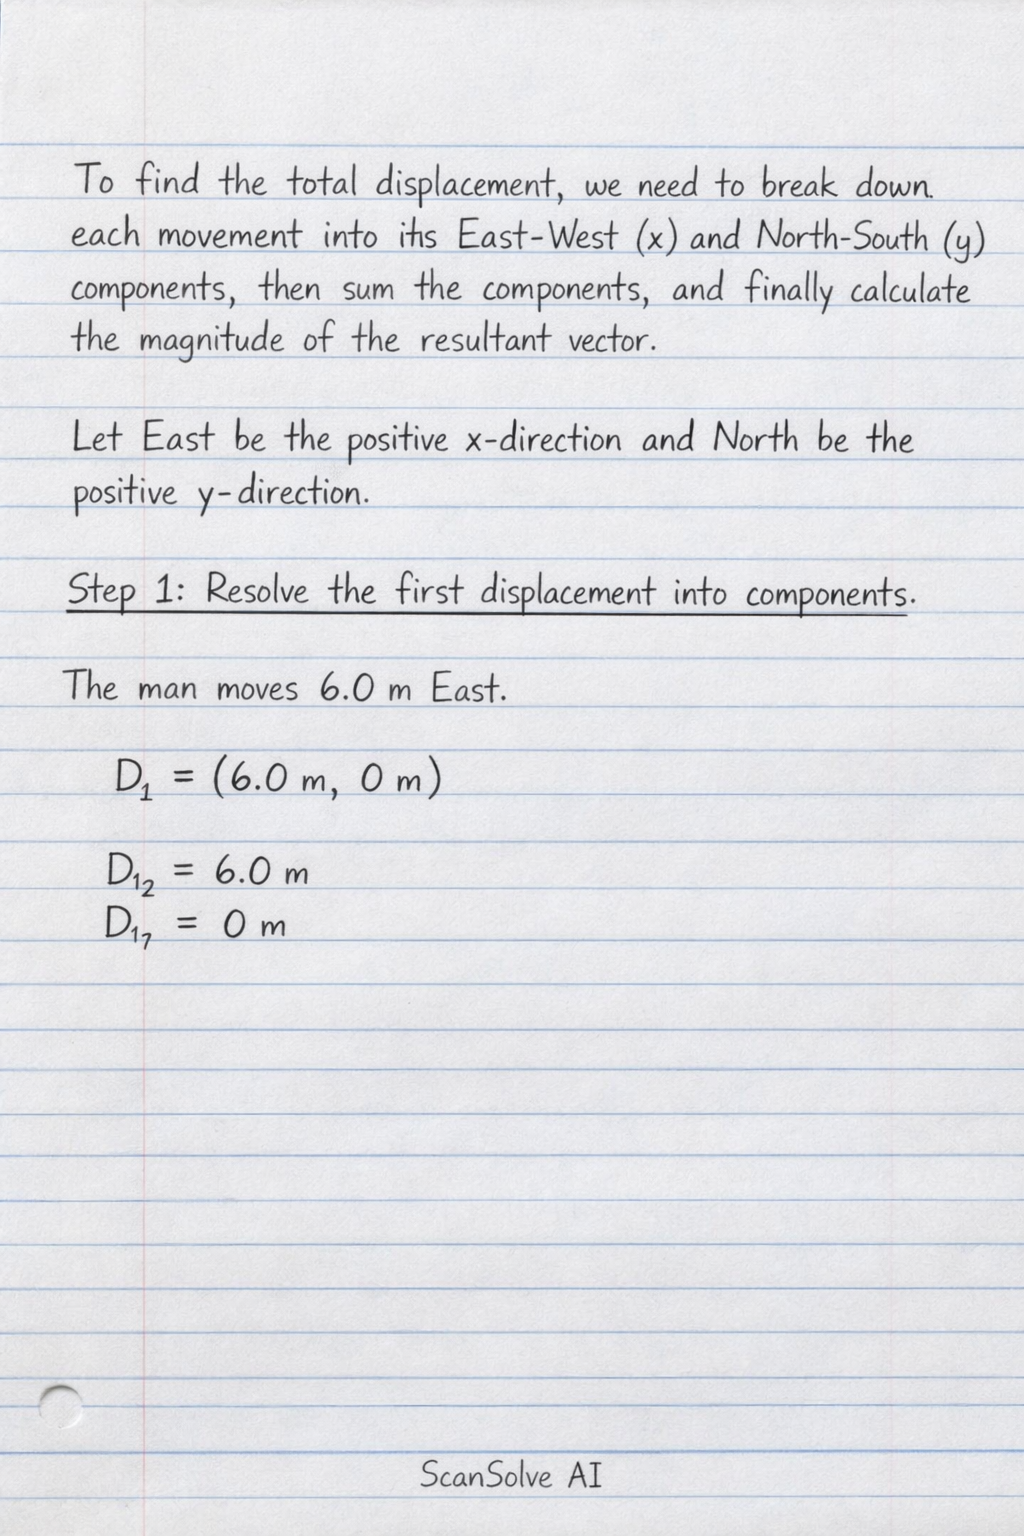 To find the total displacement, we need to break down.
each movement into its East-West (x) and North-South (y)
components, then sum the components, and finally calculate
the magnitude of the resultant vector.
Let East be the positive x-direction and North be the
positive y-direction.
Step 1: Resolve the first displacement into components.
The man moves 6.0 m East.
D₁ = (6.0 m, 0 m)
D₁₂ = 6.0 m
D₁₇ = 0 m
ScanSolve AI